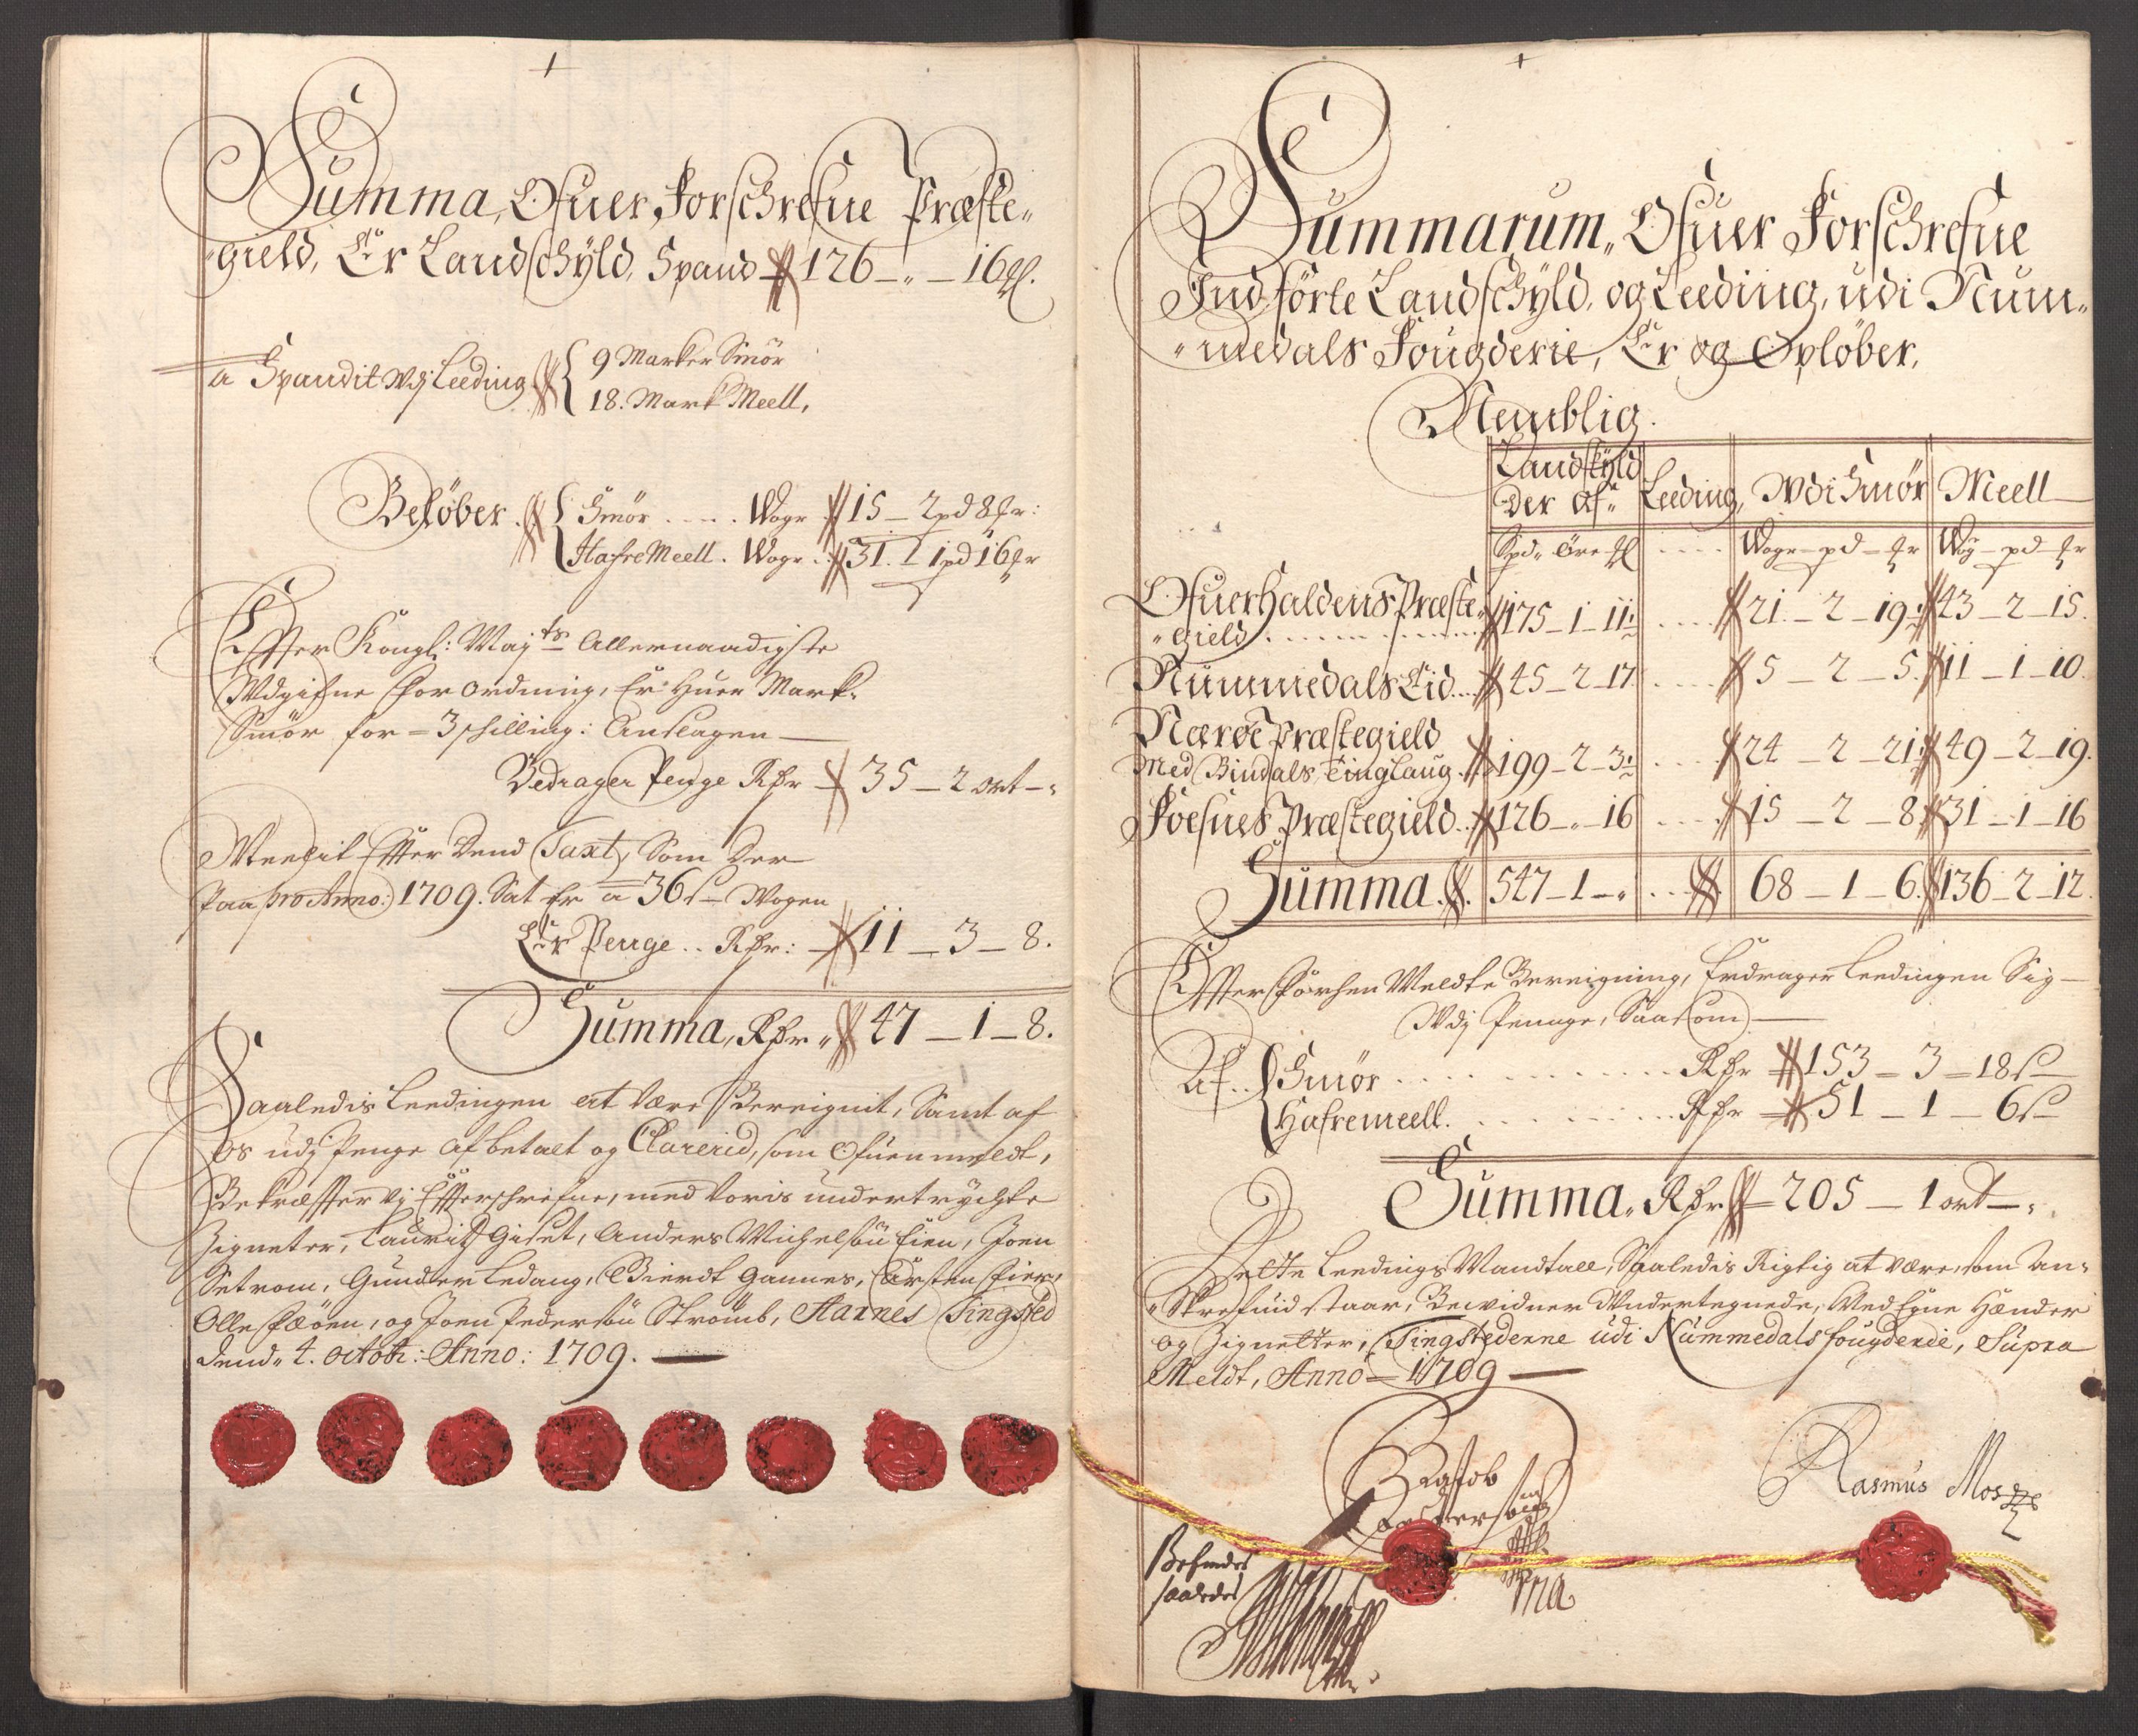 Summa, Ofuer Forschrefne Præste-
gield, Er Landschyld, Spand 126 - „ - 16 ℳ.
a Spandit Udj Leeding { 9 Marker Smör
18. Mark Meell,
Beløber. { Smör .... Woger 15 - 2 pd 8 ℳr:
Hafre Meell. Woger .. 31. 1 pd 16 ℳr
Effter Kongl: Maj:ts Allernaadigste
Udgifne Forordning, Er Huer Mark
Smör for = 3 schilling: Anslagen —
Bedrager Penge Rdr 35 - 2 ort - „
Meelit Effter Dend Taxt, Som Der
Paa pro Anno: 1709. Sat Er a 36 s Wogen
Er Penge .. Rdr: 11 - 3 - 8.
Summa, Rdr „ 47 - 1 - 8.
Saaledis Leedingen at være Bereignit, Samt af
os udj Penge afbetalt og Clarerid, som Ofuenmeldt,
Bekræffter Vj Effterschrefne, med voris undertrychte
Zigneter, Laurit Giset, Anders Michelsøn Eien, Joen
Setrom, Gunder Ledang, Sierdt Gannes, Carsten Eier,
Olle Fæöen, og Joen Pedersøn Strömb, Aarnes Tingsted
Dend. 4. octobr: Anno: 1709.
Summarum, Ofuer Forschrefne
Indförte Landschyld, og Leeding, udi Num-
medals Fougderie, Er og Opløber,
Nemblig.
Landschyld Der Af „ Leeding, Udi Smör Meell
Spd „ Öre ℳ .... Woger - pd - ℳr Wog - pd ℳr
Ofuerhaldens Præste-
gield ........ 175 - 1 - 11: .... 21. - 2 - 19: 43 - 2 - 15.
Nummedals Eid ... 45 - 2 - 17 .... 5 - 2 - 5. 11 - 1 - 10.
Nærøe Præstegield
Med Bindals Tinglaug . 199 - 2 - 3: .... 24 - 2 - 21: 49 - 2 - 19.
Foesnes Præstegield .. 126 - „ - 16 .... 15 - 2 - 8 31 - 1 - 16
Summa. 547 - 1 - „ ... 68 - 1 - 6. 136 - 2 - 12.
Effter Forhen Meldte Bereigning, Erdrager Leedingen Sig -
Udj Penge, Saasom —
Af .. { Smör ........ Rdr 153 - 3 - 18 s
Hafremeell. ........ Rdr 51 - 1 - 6 s
Summa „ Rdr 205 - 1 ort - „
Dette Leedings Mandtall, Saaledis Rigtig at være, som An-
Skrefuid staar, Bewidner Undertegnede, Med Egne Hænder
og Zignetter, Tingstederne udi Nummedals fougderie, Supra
Meldt, Anno = 1709 —
Jacob
Rasmus
Befindes
saaledes